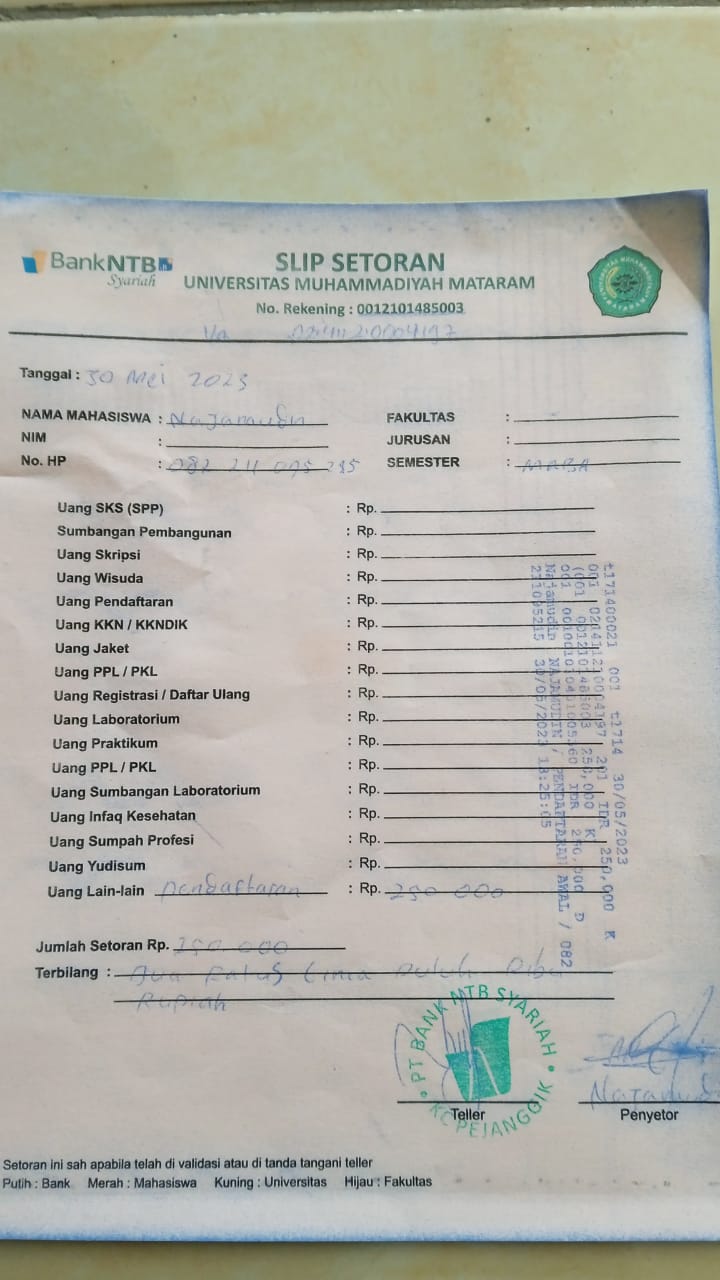 BankNTB
Syariah
SLIP SETORAN
UNIVERSITAS MUHAMMADIYAH MATARAM
No. Rekening : 0012101485003
Va
Tanggal : 30 Mei 2023
NAMA MAHASISWA : Najamudin FAKULTAS :
NIM : JURUSAN :
No. HP : SEMESTER : MABA
Uang SKS (SPP) : Rp.
Sumbangan Pembangunan : Rp.
Uang Skripsi : Rp.
Uang Wisuda : Rp.
Uang Pendaftaran : Rp.
Uang KKN / KKNDIK : Rp.
Uang Jaket : Rp.
Uang PPL / PKL : Rp.
Uang Registrasi / Daftar Ulang : Rp.
Uang Laboratorium : Rp.
Uang Praktikum : Rp.
Uang PPL / PKL : Rp.
Uang Sumbangan Laboratorium : Rp.
Uang Infaq Kesehatan : Rp.
Uang Sumpah Profesi : Rp.
Uang Yudisum : Rp.
Uang Lain-lain Pendaftaran : Rp. 250 000
Jumlah Setoran Rp. 250.000
Terbilang : Dua Ratus Lima Puluh Ribu
Rupiah
t171400021 001 t1714 30/05/2023
201 IDR 250,000 K
250,000 K
IDR 250,000 D
Najamudin NAJAMUDIN / PENDAFTARAN AWAL / 082
211095215 30/05/2023 13:25:05
PT BANK NTB SYARIAH
KC PEJANGGIK
Teller Penyetor
Setoran ini sah apabila telah di validasi atau di tanda tangani teller
Putih : Bank Merah : Mahasiswa Kuning : Universitas Hijau : Fakultas